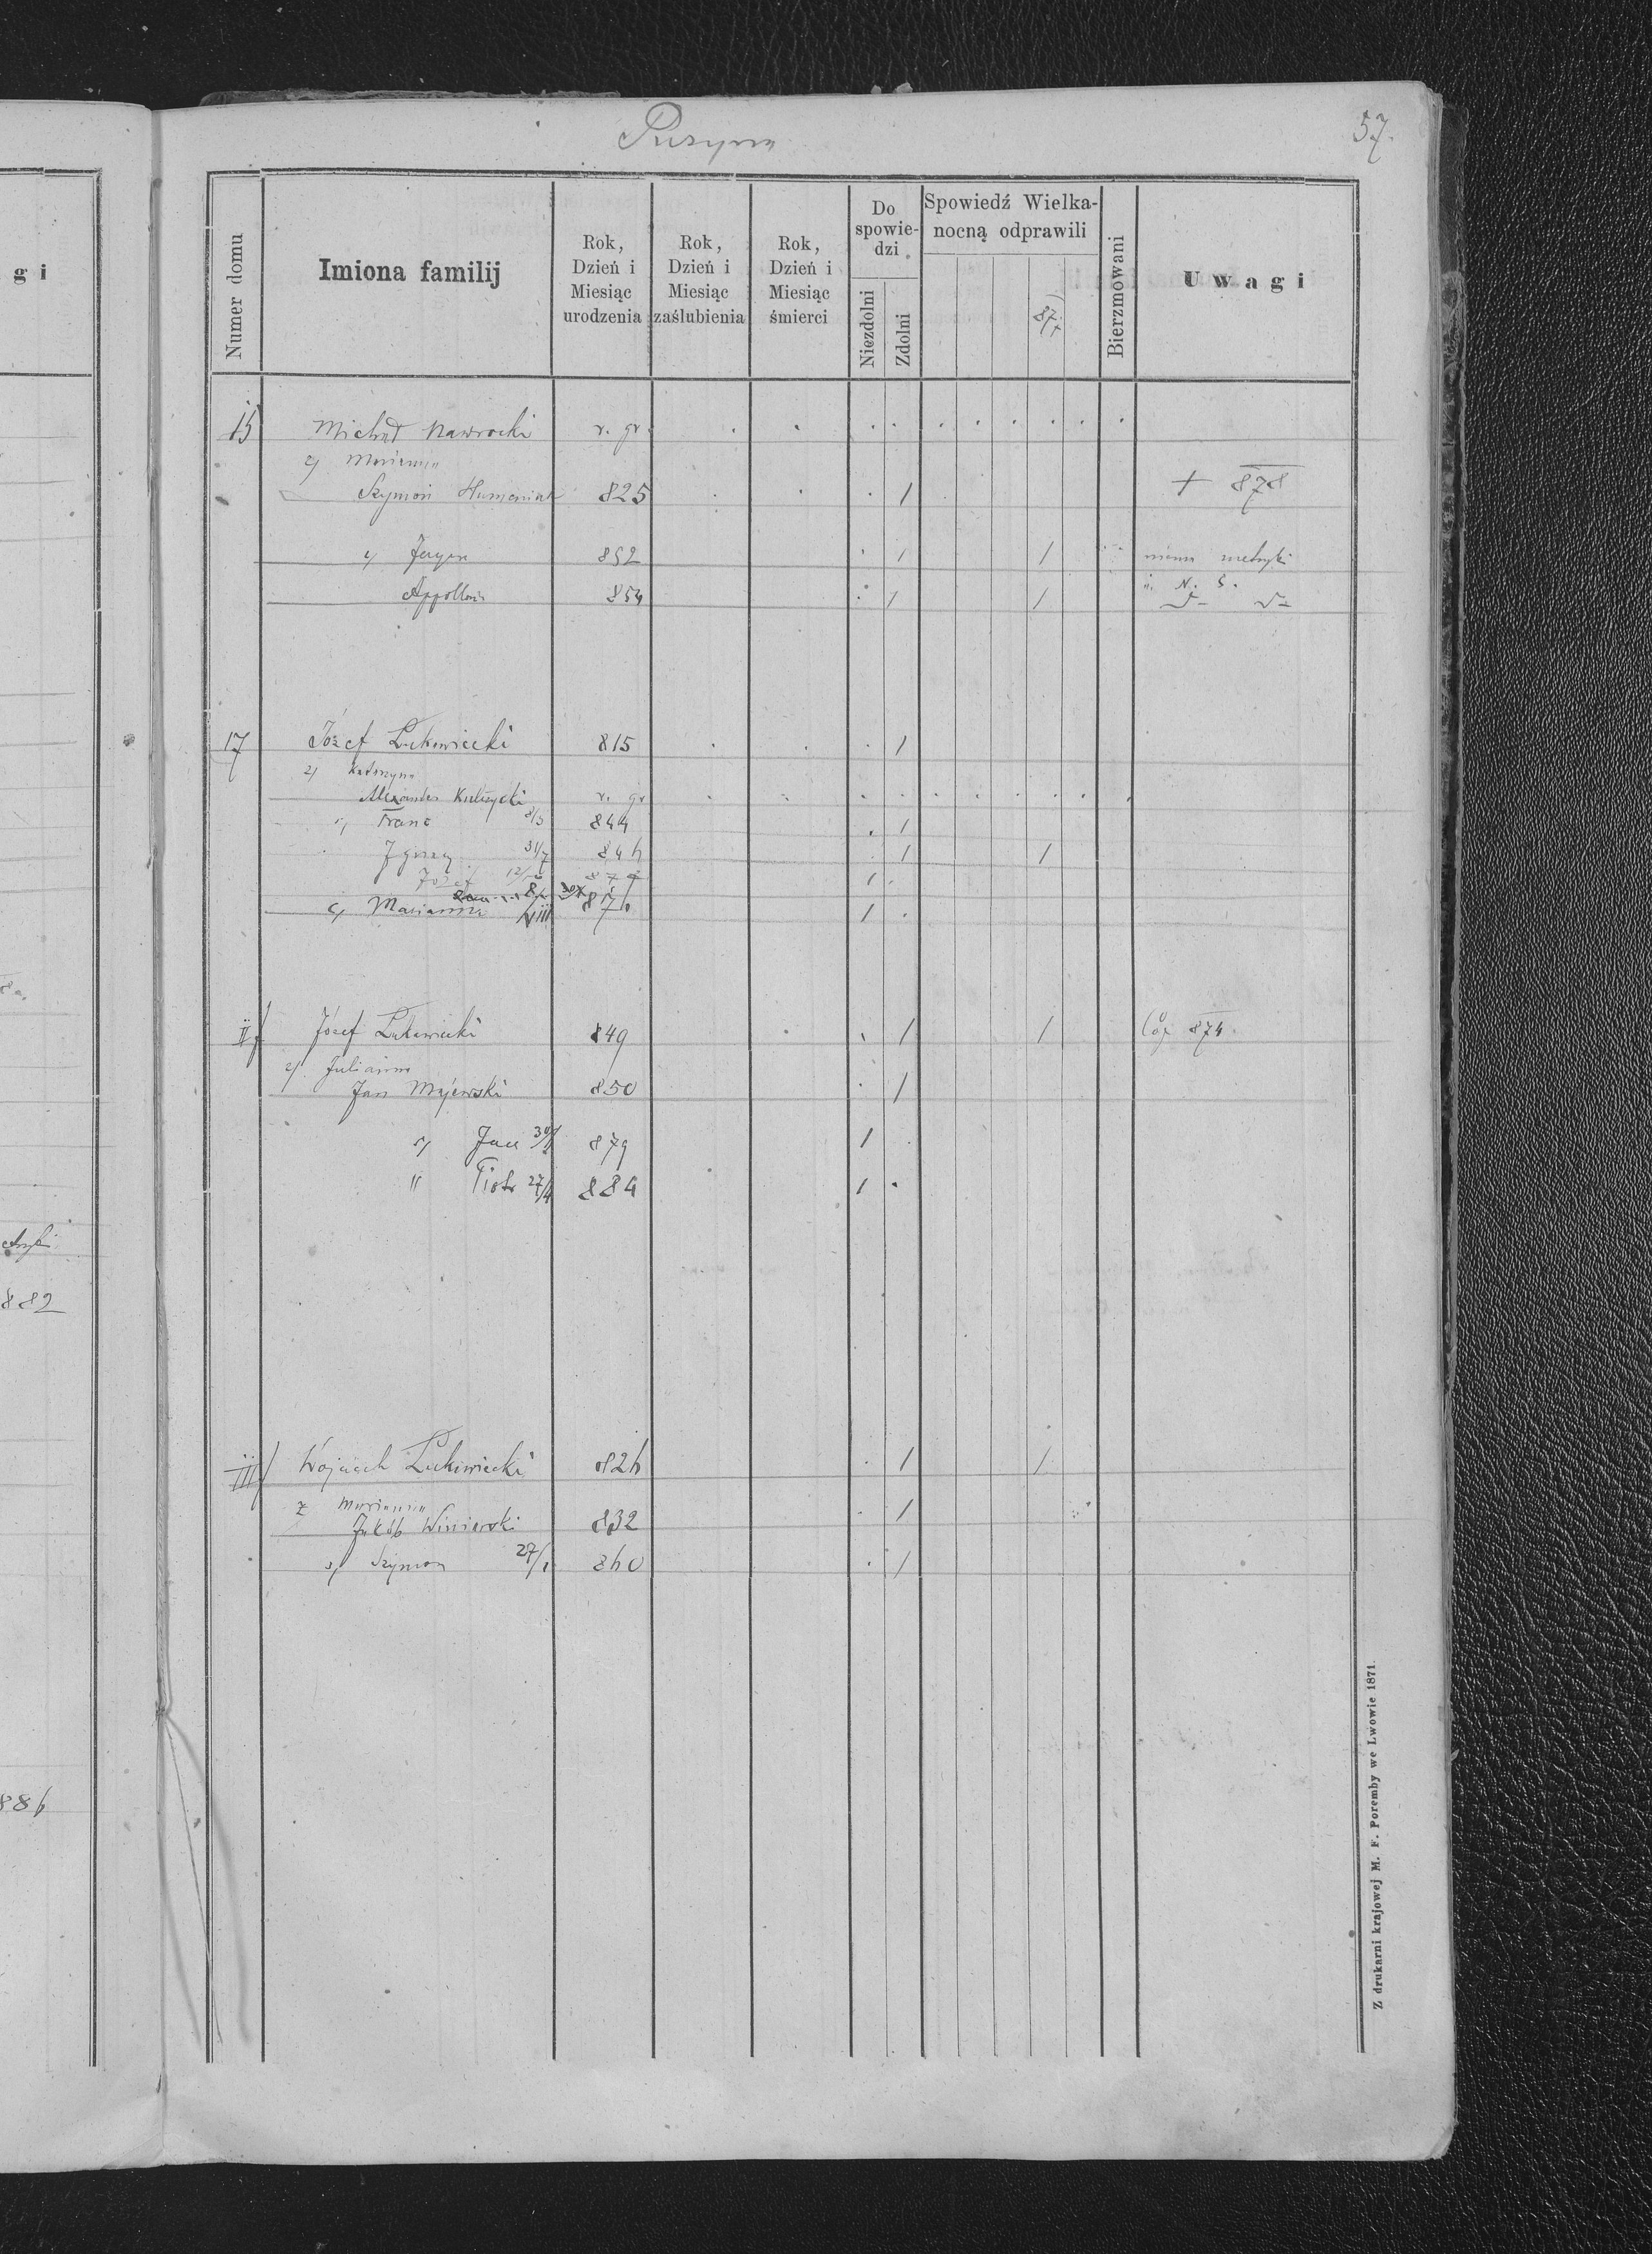 57.
g i
Numer domu
Imiona familij
Rok, Dzień i Miesiąc urodzenia
Rok, Dzień i Miesiąc zaślubienia
Rok, Dzień i Miesiąc śmierci
Do spowiedzi
Niezdolni
Zdolni
Spowiedź Wielkanocną odprawili
Bierzmowani
U w a g i
15 Michał Nawrocki r. gr
Marianna
Szymon Humeniak 825 1 + 878
852 1 1 niema metryki
Appollonia 854 1 1
17 Józef Lukowiecki 815 1
2) Katarzyna
Alexander Kulczycki r. gr
Franc 844 1
31/7 846 1 1
Józef 1
c) Marianna VIII 876 1
II Józef Lukowiecki 849 1 1 874
2) Julianna
Jan Majewski 850 1
s) Jan 879 1
" Piotr 27/4 884 1
III Wojciech Lukowiecki 826 1 1
Marianna
Jakób Winiarski 832 1
s) Szymon 27/1 860 1
882
886
Z drukarni krajowej M. F. Poremby we Lwowie 1871.